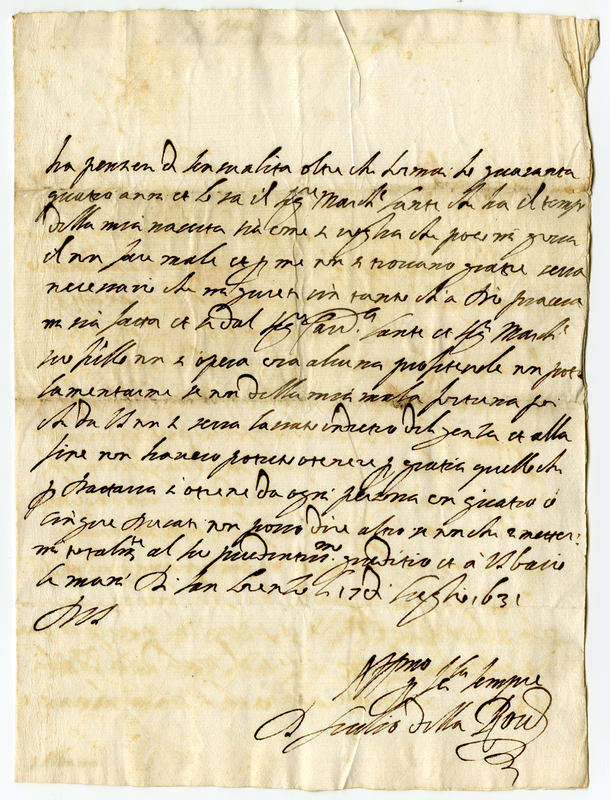 ha pensier di sensualita oltre che hormai ho quaranta
quatro anni et lo sa il Sigre March.e Sante che ha il temp
della mia nascita sia come si voglia che poco mi giova
il non fare male et p me non si trovano gratie sera
necessario che mi quieti sin tanto ch a Dio piacera
mi sia fatta et se dal Sigr Card.le Sante et Sigr March.e
suo fratello non si opera cosa alcuna profitevole non potro
lamentarme se non della mia mala fortuna poi
che da VS non si sera lassato indietro diligenza et alla
fine non havero potuto otenere p gratia quello che
p si otiene da ogni persona con quatro o
cinque Ducati non posso dire altro se non che rimetter:
mi totalmte al suo prudentissmo giuditio et a VS bacio
le mani Di San Lorenzo li 17 di Luglio 1631
DVS
Affmo p serla sempre
D Giulio della Rove